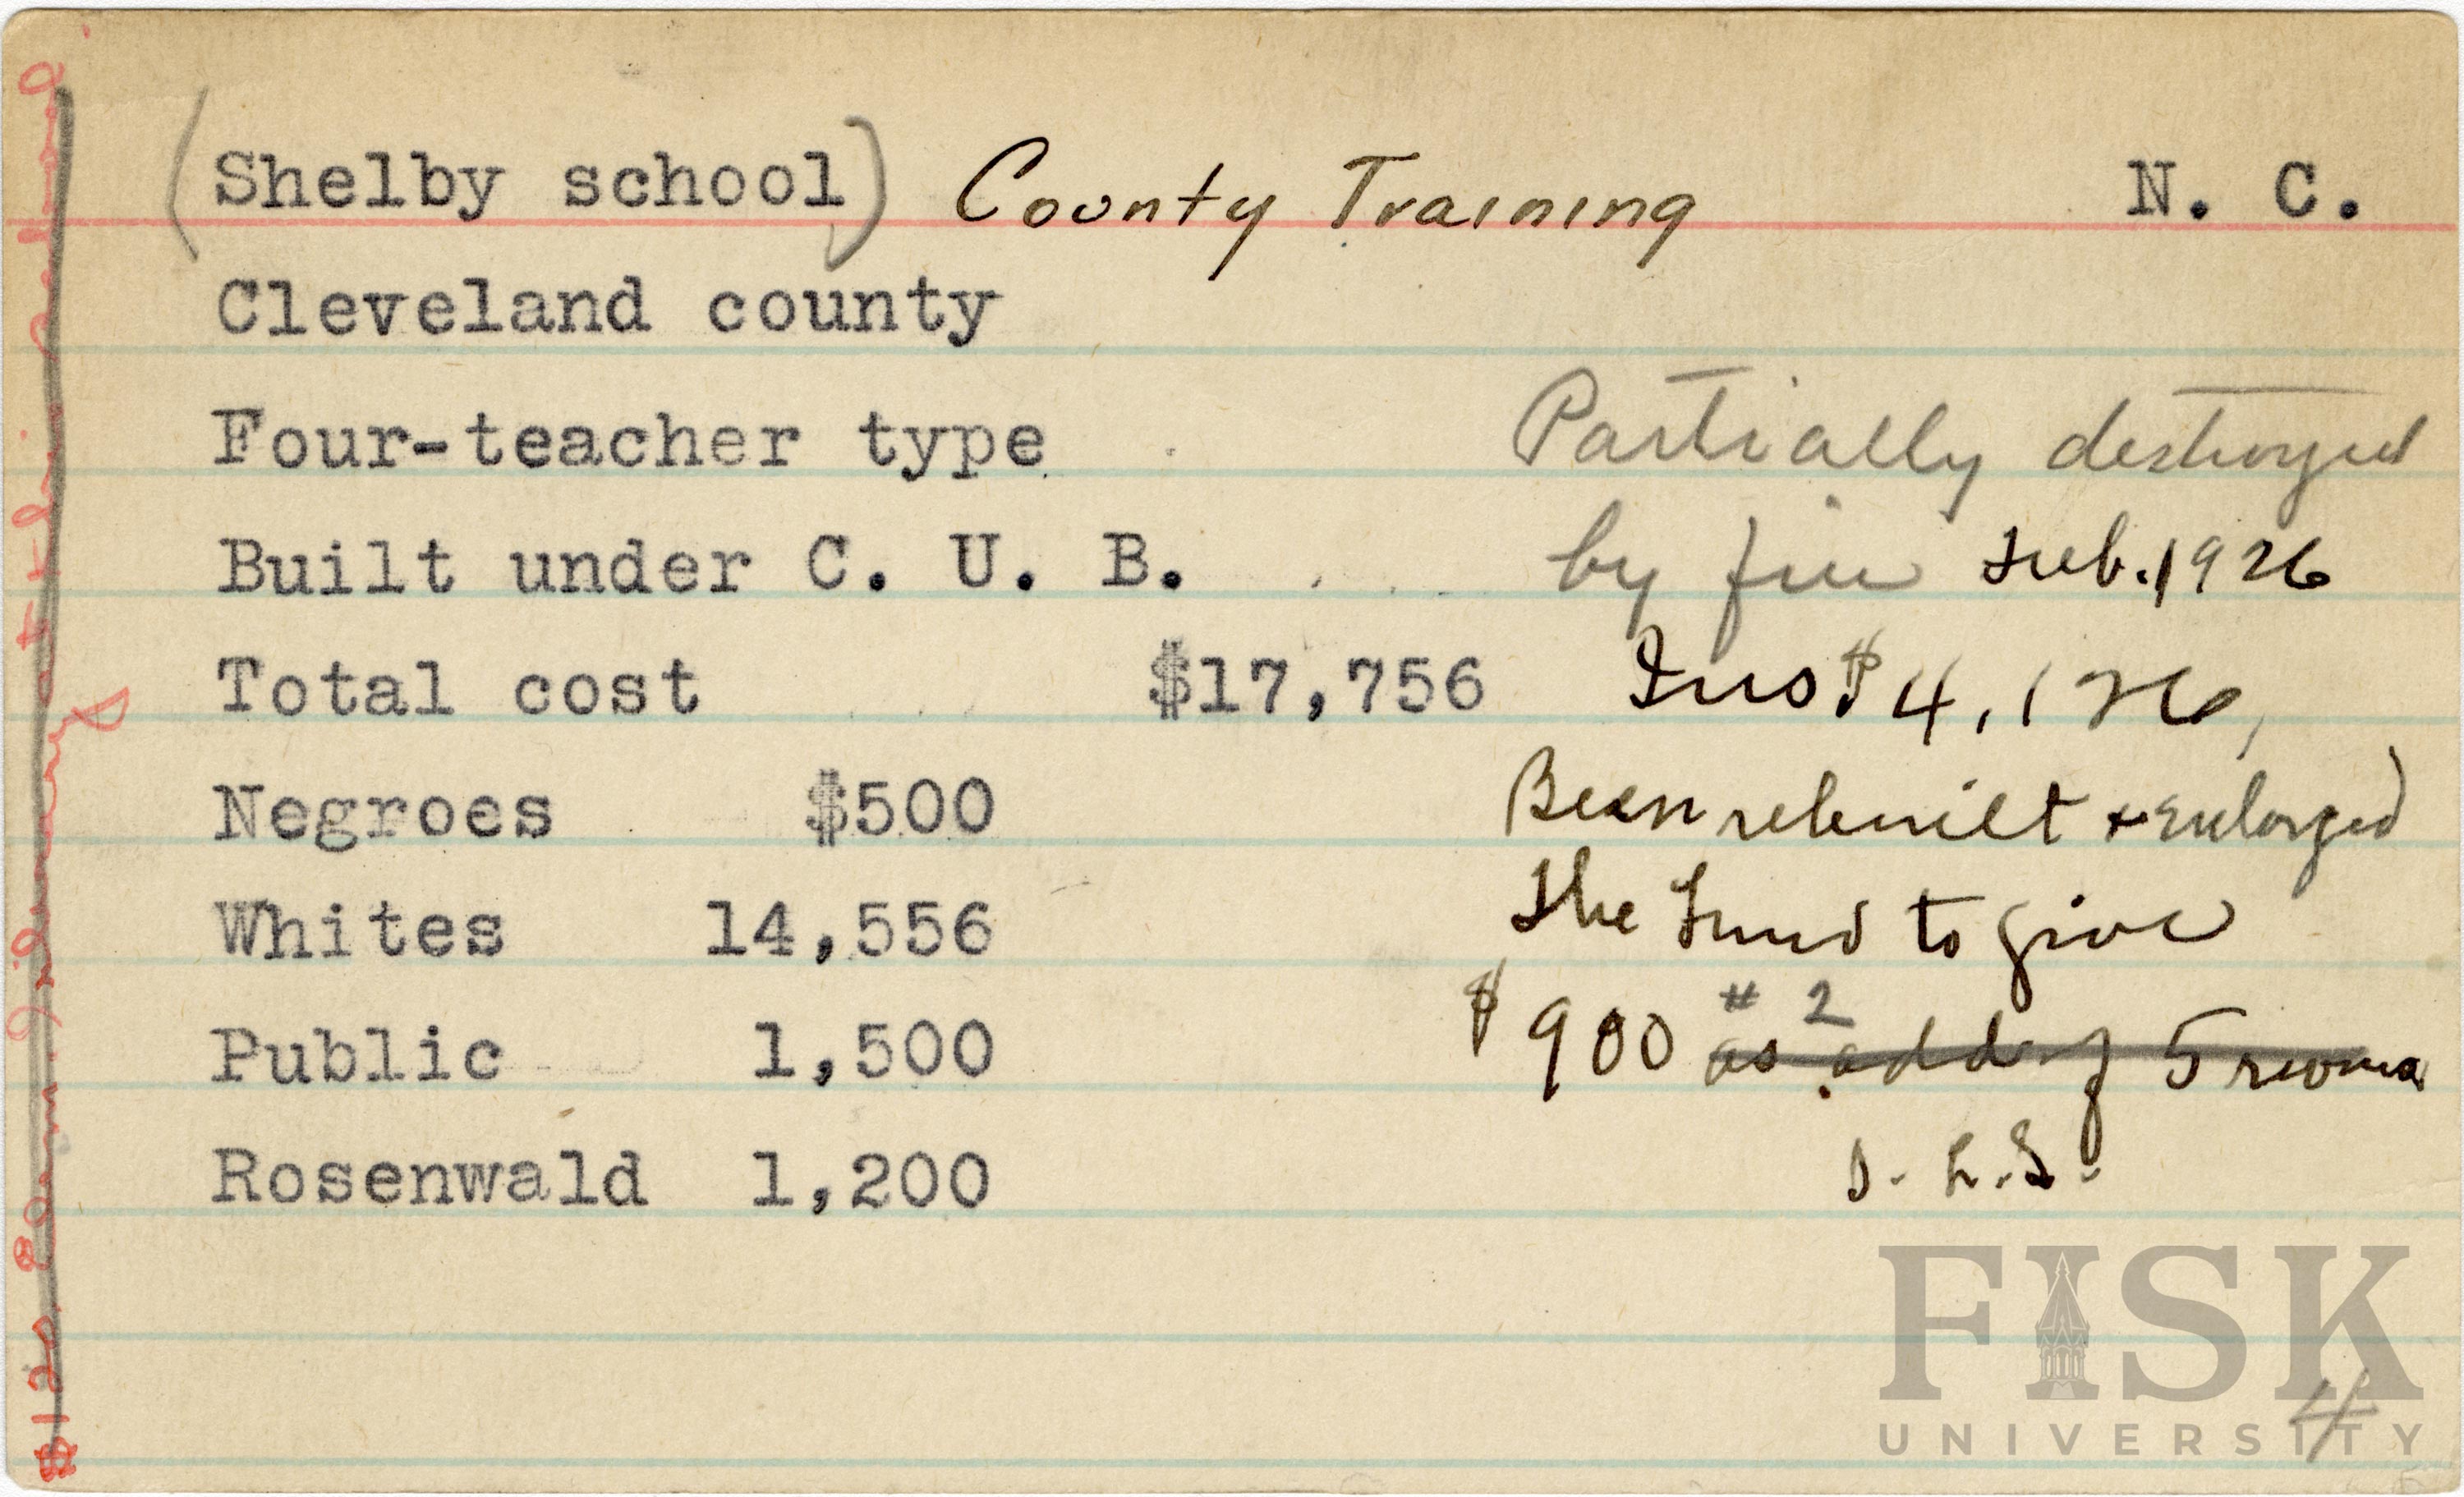 (Shelby school) County Training N. C.
Cleveland county
Four-teacher type
Partially destroyed
Built under C. U. B.
by fire Feb. 1926
Total cost $17,756
Ins $4,126,
Negroes $500
Been rebuilt + enlarged
Whites 14,556
the Fund to give
# 2
Public 1,500
$900 as add of 5 rooms
Rosenwald 1,200
S. L. S.
FISK
UNIVERSITY
4
$120 library at this school